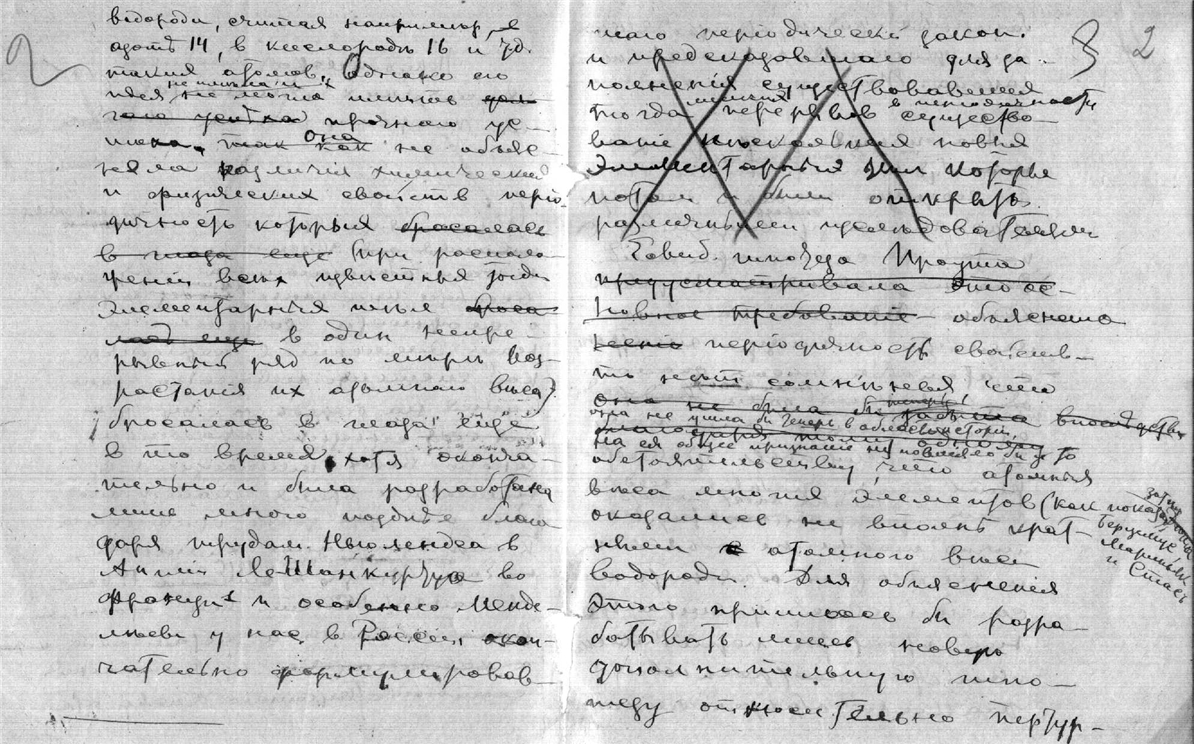 2
водорода, считая напримѣръ, въ
азотѣ 14, в кислородѣ 16 и т.д.
таких атомов. Однако его
идея не могла пустить
прочнаго
так как она не объяс-
няла различія химических
и физических свойств, перio-
дичность которых бросалась
в глаза еще (при располо-
женіи всѣх извѣстных тогда
элементарных тѣл
в один непре
рывный ряд по мѣрѣ воз-
растанія их атомнаго вѣса)
бросалась в глаза еще
в то время, хотя оконча-
тельно и была разработана
лишь много позднѣе благо
даря трудам Ньюлендса в
Англіи, Де Шанкуртуа во
Франціи и особенно Менде-
лѣева у нас в Россіи, окон-
чательно формулировав-
3 2
шаго періодическій закон
и предсказавшаго для за-
полненія существовавших
тогда перерывов в періодичности существо-
ваніе нѣскольких новых
элементарных тѣл которые
потом и были открыты
различными изслѣдователями
Если б. гипотеза Проута
предусматривала это ос-
новное требованіе объяснена
періодичность свойств
то нѣт сомнѣнія что
она не ушла бы теперь в область исторіи,
на ея общее признаніе не повліяло бы и то
обстоятельство, что атомные
вѣса многих элементов (как показали
затѣм
Берцеліус
Мариньяк
и Стас)
оказались не вполнѣ крат-
ными атомного вѣса
водорода. Для объясненія
этого пришлось бы разра-
ботывать лишь новую
дополнительную гипо-
тезу относительно пертур-